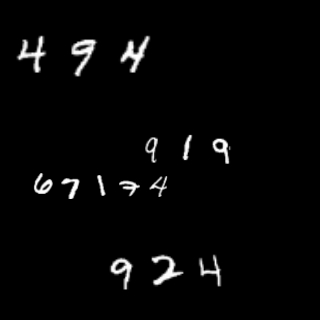 494
919
67174
924